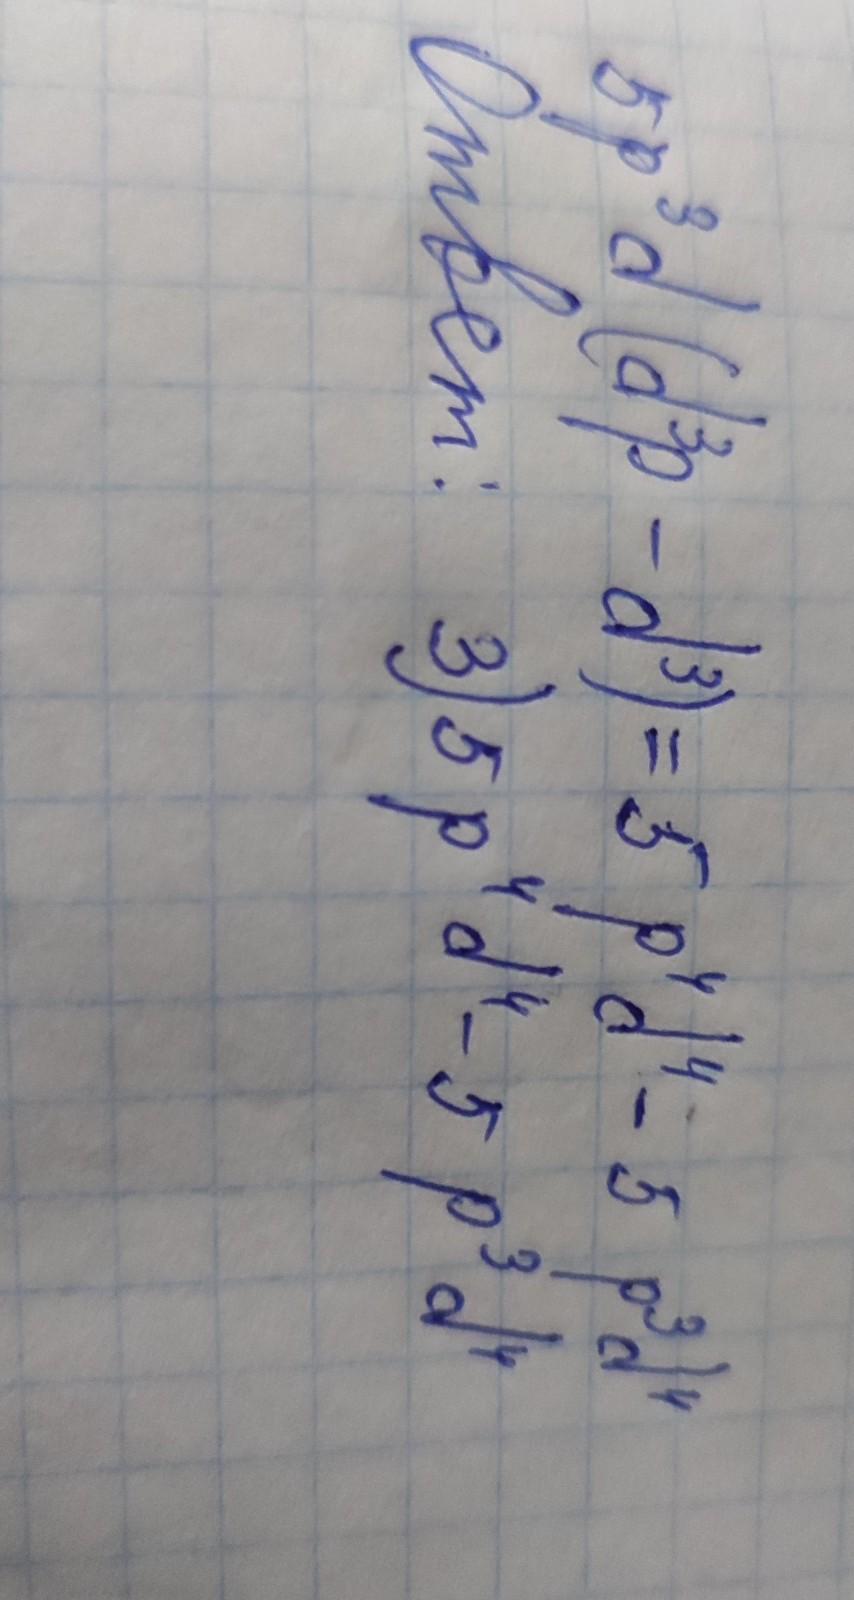 5p³d(d³p - d³) = 5p⁴d⁴ - 5p³d⁴
Ответ: 3) 5p⁴d⁴ - 5p³d⁴